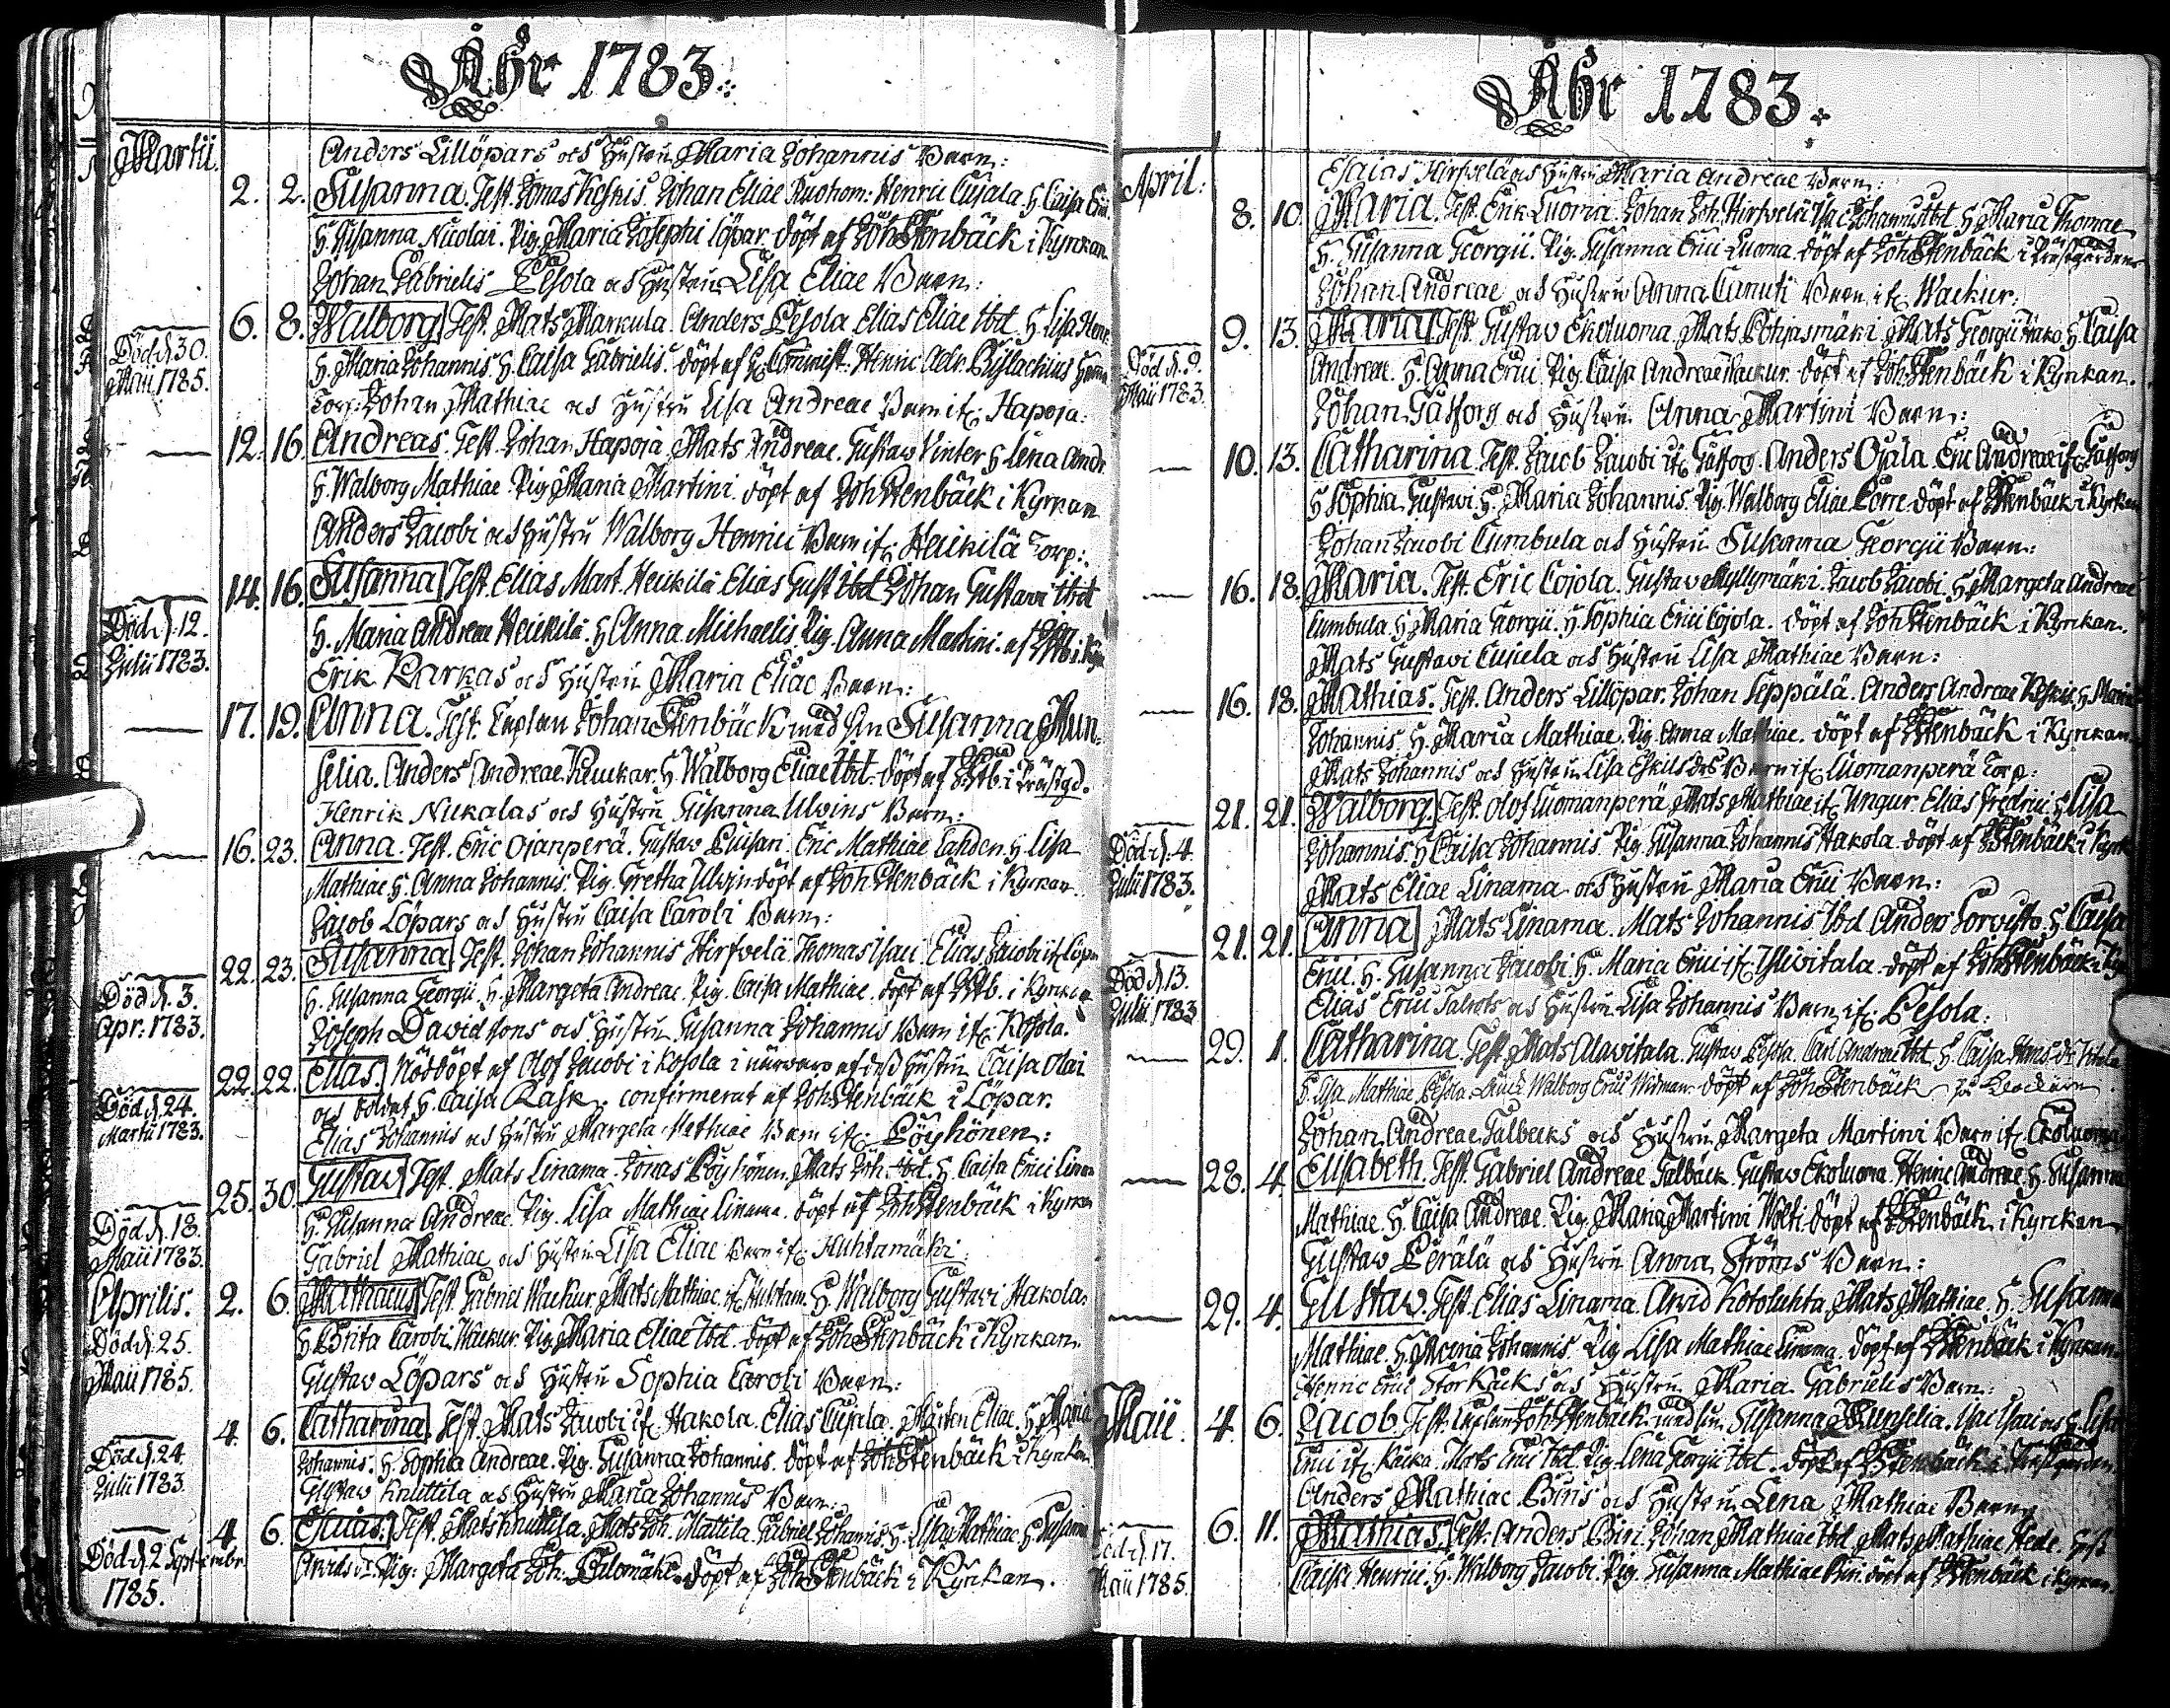 Åhr 1783.
Martii.
Anders Lillöpars och Hustru Maria Johannis Barn:
2. 2. Susanna. Test. Jonas Keskis. Johan Eliae Ruohom: Henric Cujala. H. Caisa
H. Susanna Nicolai. Pig. Maria Josephi Löpar. döpt af Joh Stenbäck i Kyrkan
Johan Gabrielis Pesola och Hustru Lisa Eliae Barn:
6. 8. Walborg Test. Mats Markula. Anders Pesola Elias Eliae Ibd. H. Lisa Henr.
Död d. 30. Maii 1785.
H. Maria Johannis. H. Caisa Gabrielis. döpt af Comminist. Henric
Torp: Johan Mathiae och Hustru Lisa Andreae Barn if. Hapoja:
12. 16. Andreas. Test. Johan Hapoja. Mats Andreae. Gustaw Winter H Lena Andr.
H. Walborg Mathiae. Pig Maria Martini. döpt af Joh Stenbäck i Kyrkan
Anders Jacobi och Hustru Walborg Henrici Barn if: Heikilä Torp:
14. 16. Susanna Test. Elias Mart. Heikilä Elias Gust Ibd. Johan Gustavi Ibd
Död d. 12. Julii 1783.
H. Maria Andreae Heikilä. H Anna Michaelis. Pig. Anna Mathiae. af
Erik Karkas och Hustru Maria Eliae Barn:
17. 19. Anna. Test. Caplan Johan Stenbäck med sin Susanna Mun-
selia. Anders Andreae H. Walborg Eliae Ibd. döpt af Stb. i Prästgd.
Henrik Nukalas och Hustru Susanna Ulvins Barn:
16. 23. Anna. Test. Eric Ojanperä. Gustaw Luisari. Eric Mathiae Lahden. H. Lisa
Mathiae. H. Anna Johannis. Pig. Gretha döpt af Joh Stenbäck i Kyrkan
Jacob Löpars och Hustru Caisa Caroli Barn:
22. 23. Susanna Test. Johan Johannis Hirfvelä. Thomas Isaci. Elias Jacobi if Löpar
Död d. 3. Apr. 1783.
H. Susanna Georgii. H. Margeta Andreae. Pig. Caisa Mathiae. döpt af Stb. i Kyrkan
Joseph Davidsons och Hustru Susanna Johannis Barn if. Kosola.
22. 22. Elias. Nöddöpt af Olof Jacobi i Kosola i närvaro af dess Hustru Caisa Olai
Död d. 24. Martii 1783.
och H. Caisa Rask. confirmerat af Joh Stenbäck i Löpar.
Elias Johannis och Hustru Margeta Mathiae Barn if. Pöyhönen:
25. 30. Gustaw Test. Mats Linama. Jonas Pöyhönen. Mats Joh. Ibd. H. Caisa Erici
Död d. 18. Maii 1783.
H. Susanna Andreae. Pig. Lisa Mathiae Linama. döpt af Joh Stenbäck i Kyrkan
Gabriel Mathiae och Hustru Lisa Eliae Barn if. Huhtamäki:
Aprilis. 2. 6. Mathaeus Test. Gabriel Wackur. Mats Mathiae if. H. Walborg Gustavi Hakola.
Död d. 25. Maii 1785.
H. Brita Caroli Wackur. Pig. Maria Eliae Ibd. döpt af Joh Stenbäck i Kyrkan.
Gustaw Löpars och Hustru Sophia Caroli Barn:
4. 6. Catharina. Test. Mats Jacobi if. Hakola. Elias Cujala. Mårten Eliae. H. Maria
Död d. 24. Julii 1783.
Johannis. H. Sophia Andreae. Pig. Susanna Johannis. döpt af Joh Stenbäck i Kyrkan
Gustaw Knuttila och Hustru Maria Johannis Barn:
4. 6. Elias. Test. Mats Knuttila. Mats Joh. Mattila. Gabriel Johannis. H. Lisa Mathiae. H Susanna
Död d. 2 Septembr. 1785.
Pig: Margeta Joh. döpt af Joh Stenbäck i Kyrkan.
Åhr 1783.
April:
Esaias Hirfvelä och Hustru Maria Andreae Barn:
8. 10. Maria. Test. Erik Luoma. Johan Joh. Hirfvelä. Isac Johannis Ibd. H Maria Thomae
H. Susanna Georgii. Pig. Susanna Erici Luoma. döpt af Joh Stenbäck i Prästgården
Johan Andreae och Hustru Anna Cunuti Barn if. Wackur:
9. 13. Maria Test. Gustaw Ekoluoma. Mats Pohjasmäki. Mats Georgii Hako. H. Caisa
Död d. 9. Maii 1783.
Andreae. H. Anna Erici. Pig. Caisa Andreae Wackur. döpt af Joh Stenbäck i Kyrkan.
Johan Gåsborg och Hustru Anna Martini Barn:
10. 13. Catharina. Test. Jacob Jacobi if. Anders Ojala. Eric Andreae if.
H Sophia Gustavi. H. Maria Johannis. Pig. Walborg Eliae Porre. döpt af Stenbäck i Kyrkan
Johan Jacobi Cumbula och Hustru Susanna Georgii Barn:
16. 18. Maria. Test. Eric Cojola. Gustav Myllymäki. Jacob Jacobi. H. Margeta Andreae
Cumbula. H. Maria Georgii. H. Sophia Erici Cojola. döpt af Joh Stenbäck i Kyrkan.
Mats Gustavi Cujala och Hustru Lisa Mathiae Barn:
16. 18. Mathias. Test. Anders Lillöpar. Johan Seppälä. Anders Andreae Keskis. H. Maria
Johannis. H. Maria Mathiae. Pig. Anna Mathiae. döpt af Stenbäck i Kyrkan
Mats Johannis och Hustru Lisa Eskilsdr Barn if. Luomanperä Torp:
21. 21. Walborg. Test. Olof Luomanperä Mats Mathiae if. Ungur. Elias Fredrici. H. Lisa
Död d. 4. Julii 1783.
Johannis. H Caisa Johannis. Pig. Susanna Johannis Hakola. döpt af Stenbäck i Kyrk
Mats Eliae Linama och Hustru Maria Erici Barn:
21. 21. Anna Mats Linama. Mats Johannis Ibd. Anders Torvisto. H. Caisa
Död d. 13. Julii 1783
Erici. H. Susanna Jacobi. H. Maria Erici if. Yliwitala. döpt af Joh Stenbäck i
Elias Erici och Hustru Lisa Johannis Barn if. Pesola:
29. 1. Catharina. Test. Mats Alawitala. Gustaw Pesola. Carl Andreae Ibd. H. Caisa
H. Lisa Mathiae Pesola. Walborg Erici Widman. döpt af Joh Stenbäck
Johan Andreae Talbecks och Hustru Margeta Martini Barn if. Ekoluoma
28. 4. Elisabeth. Test. Gabriel Andreae Talbäck. Gustaw Ekoluoma. Henric Andreae. H. Susanna
Mathiae. H. Caisa Andreae. Pig. Maria Martini Wolti. döpt af Stenbäck i Kyrckan
Gustaw Perälä och Hustru Anna Ströms Barn:
29. 4. Gustaw. Test. Elias Linama. Arvid Kotolahta. Mats Mathiae. H. Susanna
Mathiae. H. Maria Johannis. Pig Lisa Mathiae Linama. döpt af Stenbäck i Kyrkan
Henric Erici Storkåcks och Hustru Maria Gabrielis Barn:
Maii. 4. 6. Jacob. Test. Caplan Joh Stenbäck med sin Susanna Munselia. Isac Isaci och H. Lisa
Erici if. Kåcka. Mats Erici Ibd. Pig. Lena Georgii Ibd. döpt af Stenbäck i Prästgården
Anders Mathiae Biris och Hustru Lena Mathiae Barn:
6. 11. Mathias. Test. Anders Biri. Johan Mathiae Ibd. Mats Mathiae Hede. H.
Död d. 17. Maii 1785.
Caisa Henrici. H. Walborg Jacobi. Pig. Susanna Mathiae Biri. döpt af Stenbäck i Kyrkan.